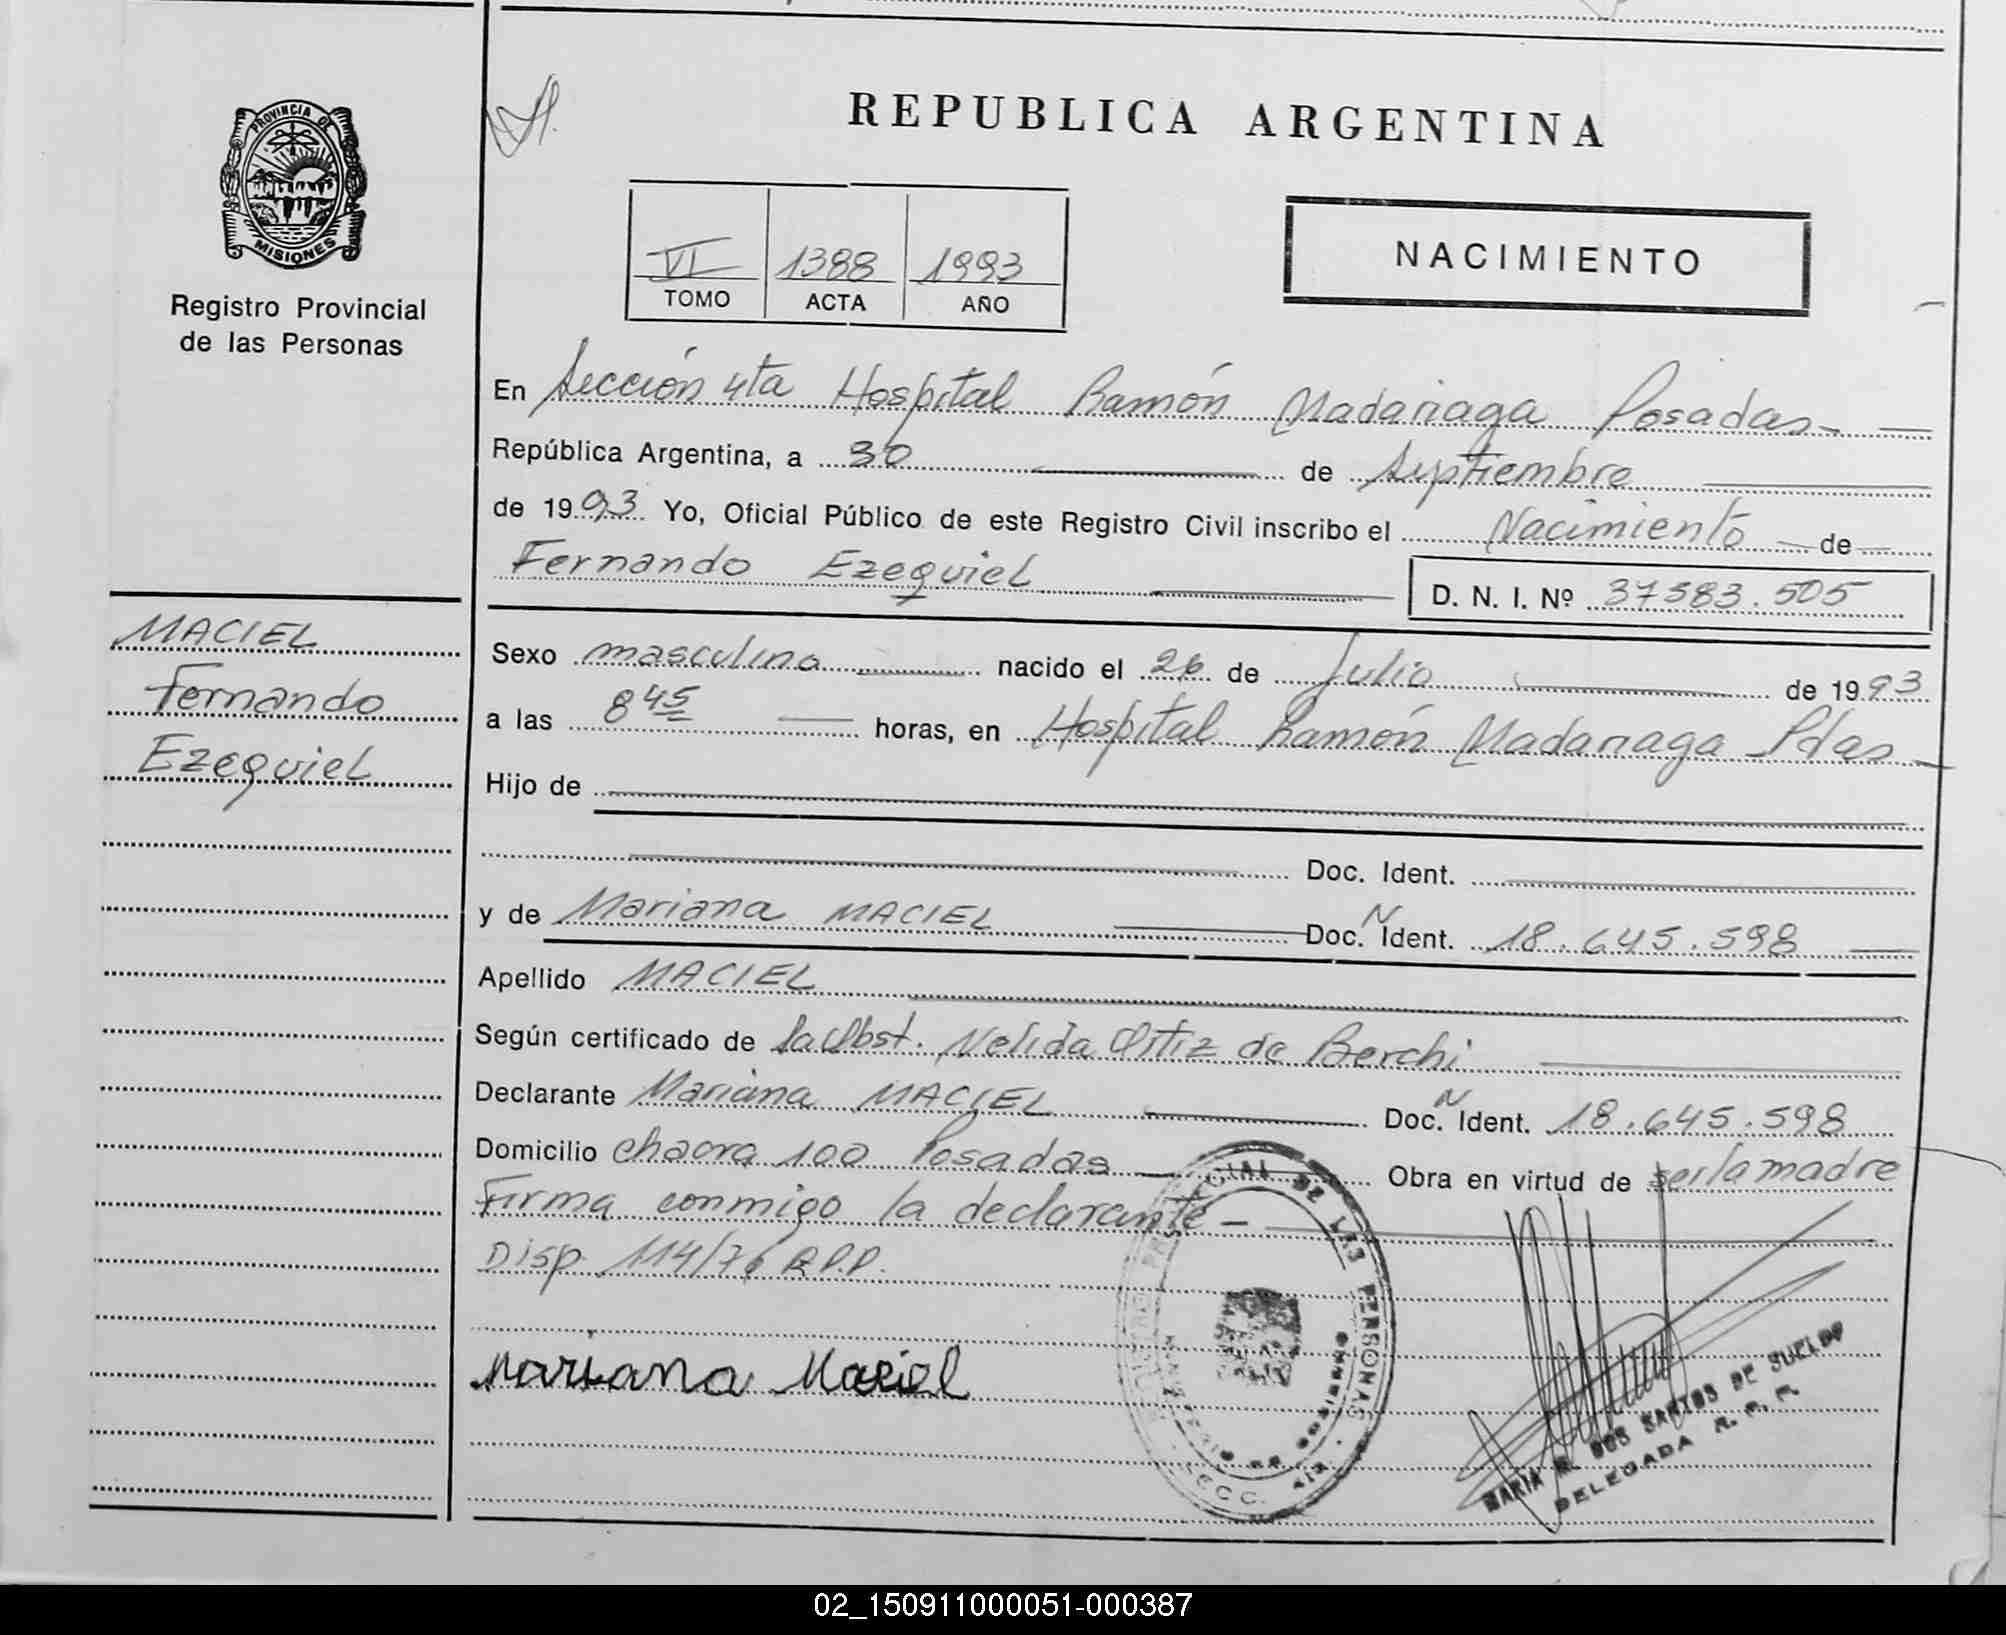 REPUBLICA ARGENTINA
PROVINCIA DE
MISIONES
Registro Provincial
de las Personas
VI 1388 1993
TOMO ACTA AÑO
NACIMIENTO
En Sección 4ta Hospital Ramón Madariaga Posadas
República Argentina, a 30 de Septiembre
de 1993 Yo, Oficial Público de este Registro Civil inscribo el Nacimiento de
Fernando Ezequiel D. N. I. Nº 37383.505
MACIEL
Fernando
Ezequiel
Sexo masculino nacido el 26 de Julio de 1993
a las 8 45 horas, en Hospital Ramón Madariaga Pdas
Hijo de
Doc. Ident.
y de Mariana MACIEL Doc. N Ident. 18.645.598
Apellido MACIEL
Según certificado de la Obst. Nelida Ortiz de Berchi
Declarante Mariana MACIEL Doc. N Ident. 18.645.598
Domicilio chacra 100 Posadas Obra en virtud de ser la madre
Firma conmigo la declarante
Disp. 114/76 R.P.P.
Mariana Maciel
DE LAS PERSONAS
MINISTERIO DE GOBIERNO
SECC. 4ta.
MARIA DOS SANTOS DE SUELDO
DELEGADA R. P. P.
02_150911000051-000387